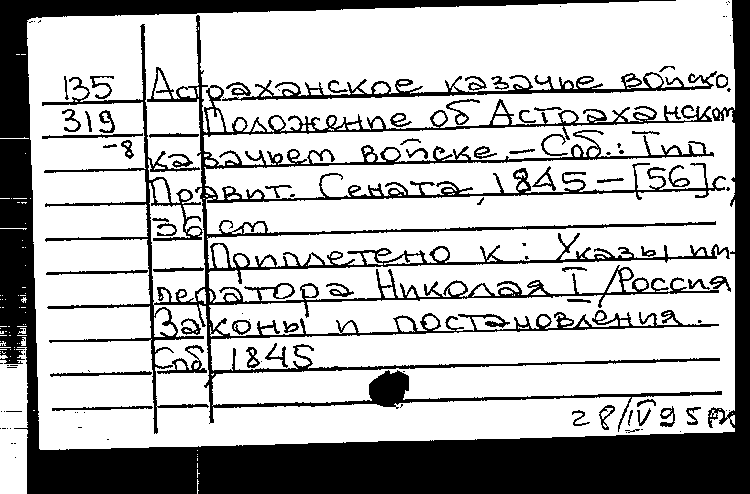 135 Астраханское казачье войско.
319 Положение об Астраханском
-8 казачьем войске. – Спб.: Тип.
Правит. Сената, 1845 – [56] с.;
36 см
Приплетено к: Указы им-
ператора Николая I / Россия
Законы и постановления.
Спб, 1845
28/IV 95